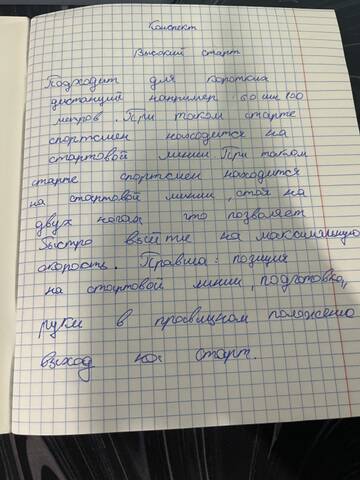 Конспект
Высокий старт
Подходит для коротких
дистанций например 60 или 100
метров. При таком старте
спортсмен находится на
стартовой линии. При таком
старте спортсмен находится
на стартовой линии, стоя на
двух ногах что позволяет
быстро выйти на максимальную
скорость. Правила: позиция
на стартовой линии, подготовка,
руки в правильном положению
выход на старт.